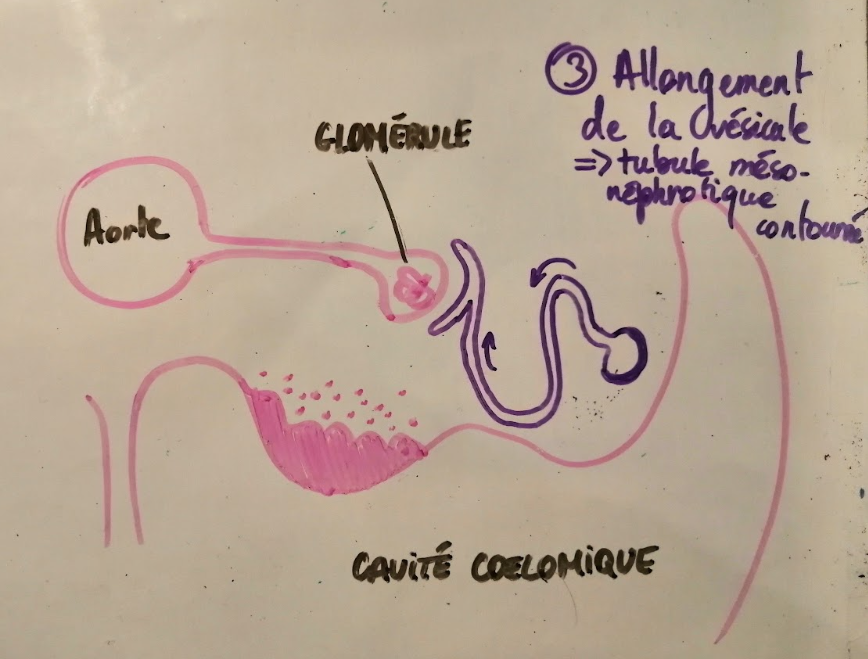 ③ Allongement
de la vésicule
=> tubule méso-
néphrotique
contourné
GLOMÉRULE
Aorte
CAVITÉ COELOMIQUE